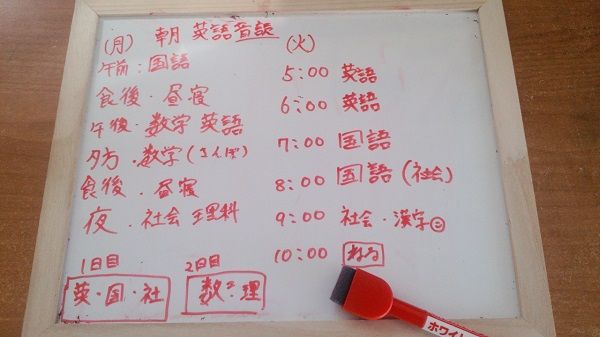 朝 英語音読
(月)
午前:国語
食後・昼寝
午後・数学 英語
夕方・数学(さんぽ)
食後・昼寝
夜・社会 理科
1日目
英・国・社
2日目
数・理
(火)
5:00 英語
6:00 英語
7:00 国語
8:00 国語(社会)
9:00 社会・漢字
10:00 ねる
ホワイト